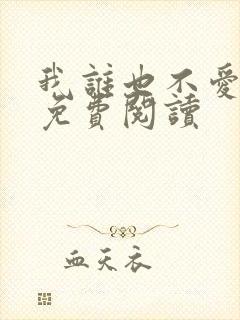 我誰也不愛
免費閱讀
血天衣